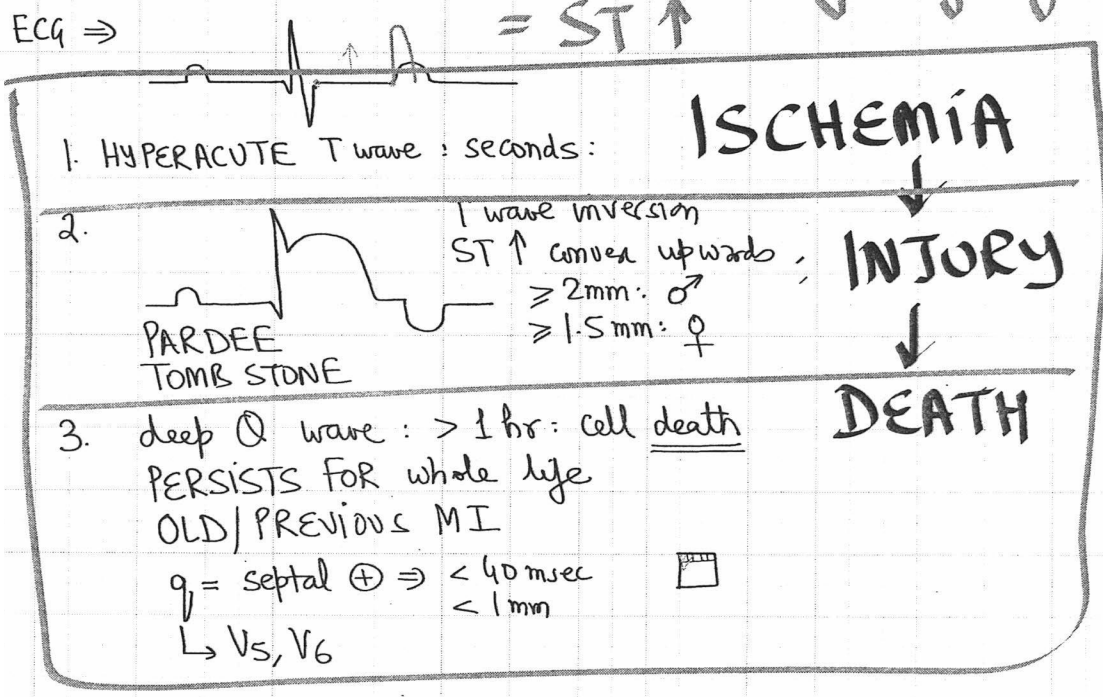 ECG ⇒
= ST ↑
1. HYPERACUTE T wave : seconds:
ISCHEMiA
↓
2.
T wave inversion
ST ↑ convex upwards ;
≥ 2mm: ♂
≥ 1.5mm: ♀
INJURY
↓
PARDEE
TOMB STONE
DEATH
3. deep Q wave : > 1 hr : cell death
PERSiSTS FOR whole life
OLD/PREViOUS MI
q = septal ⊕ ⇒ < 40 msec
< 1 mm
↳ V5, V6